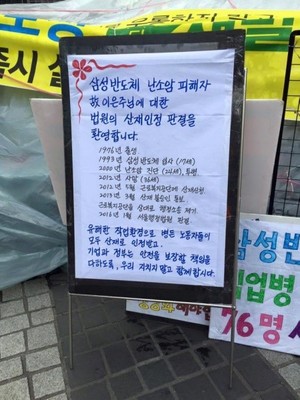 즉시
삼성반도체 난소암 피해자
故 이은주님에 대한
법원의 산재인정 판결을
환영합니다.
1976년 출생
1993년 삼성반도체 입사 (17세)
2000년 난소암 진단 (24세), 투병
2012년 사망 (36세)
2012년 5월 근로복지공단에 산재신청
2013년 3월 산재 불승인 통보
근로복지공단을 상대로 행정소송 제기
2016년 1월 서울행정법원 판결
유해한 작업환경으로 병든 노동자들이
모두 산재로 인정받고
기업과 정부는 안전을 보장할 책임을
다하도록, 우리 지치지 말고 함께 합시다.
삼성반
직업병
76명